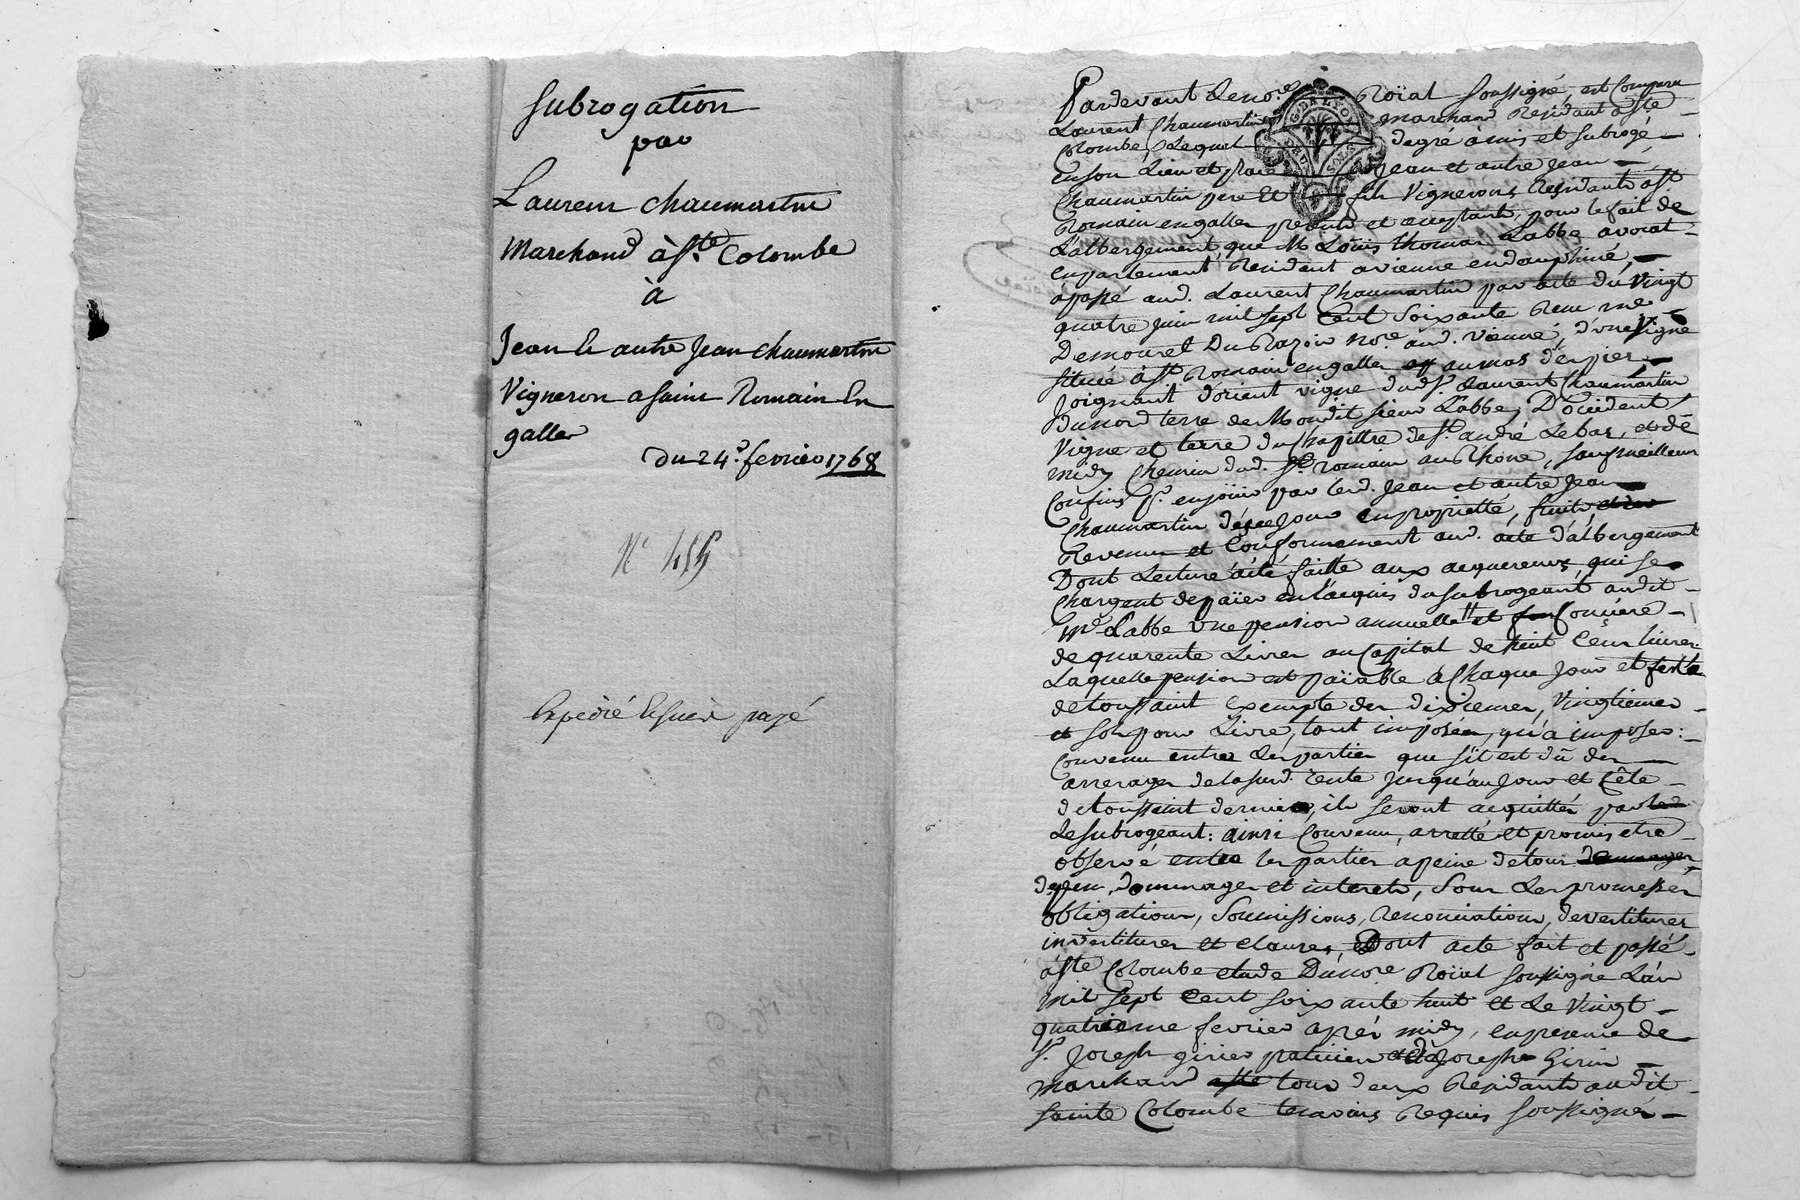 Subrogation
par
Laurent chaumartin
Marchand à Ste Colombe
à
Jean & autre Jean chaumartin
Vigneron a saint Romain En
galler
Du 24e. fevrier 1768
No
Expedié payé
Pardevant le nore. Roïal soussigné, est Comparu
Laurent Chaumartin marchand Residant a Ste
Colombe, Lequel degré a mis et subrogé
En son Lieu et place Jean et autre Jean
Chaumartin pere et fils Vignerons Residants a St
Romain en galler presents et acceptants, pour le fait de
L'albergement que Me Louis thomas Labbe avocat
en parlement, Resident a vienne en dauphiné,
a passé aud. Laurent Chaumartin par acte du Vingt
quatre juin mil sept Cent soixante neuf me
Demouret Du Razoir nore. aud. Vienne, d'une Vigne
située à St Romain en galler au mas d'enpier,
Joignant d'orient vigne dud. St. Laurent Chaumartin
Du nord terre de Mondit sieur Labbe, D'occident
Vigne et terre du Chapittre de St. andré Le bas, et de
midy Chemin dud. St. Romain au Rhone, sauf meilleurs
Confins pr. en jöuir par lesd. Jean et autre Jean
Chaumartin dez ce Jour en propriette, fruits
Revenus et Conformement aud. acte d'albergement
Dont Lecture a été faitte aux acquereurs, qui se
Chargent de païer en l'acquis du subrogeant audit
Me Labbe une pension annuelle et fonciere
de quarente Livres au Capital de huit Cens livres
Laquelle pension est païable a Chaque Jour et feste
de toussaint exempte des dixiemes, Vingtiemes
et sols pour Livre, tant imposés, qu'a imposer:
Convenu entre les parties que s'il est dû des
arrerages de lasusd. rente jusqu'au Jour et fête
de toussaint dernier, ils seront acquittés par
Le subrogeant: ainsi Convenu, arretté et promis etre
observé entre les parties a peine de tous
depens, dommages et interets, sous les promesses
obligations, soumissions, Renonciations, devestitures
investitures et clauses, Dont acte fait et passé
a Ste Colombe etude Du nore Roïal soussigné L'an
mil sept cent soixante huit et Le Vingt
quatrième fevrier après midy, en presence de
Sr. Joseph girier praticien et de Joseph Girin
marchand tous deux Residants audit
Sainte Colombe temoins Requis soussignés